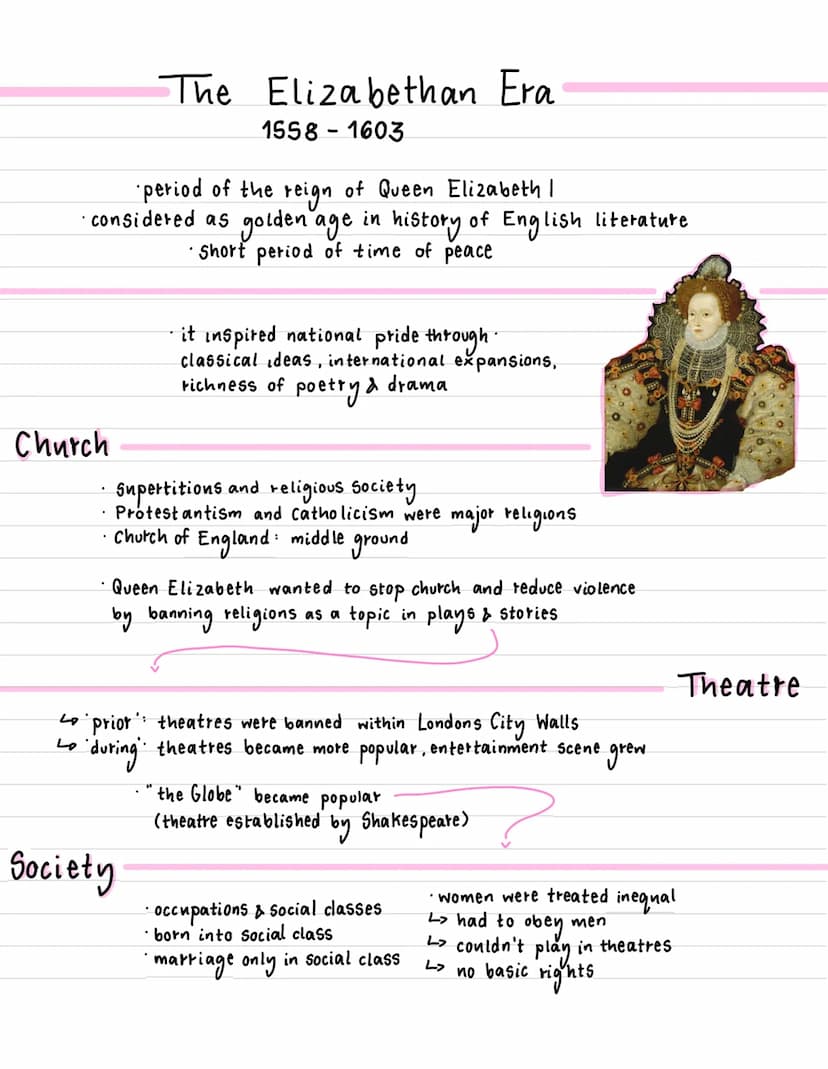 The Elizabethan Era
1558 - 1603
·period of the reign of Queen Elizabeth I
·considered as golden age in history of English literature
·short period of time of peace
·it inspired national pride through·
classical ideas, international expansions,
richness of poetry & drama
Church
· supertitions and religious society
· Protestantism and Catholicism were major religions
· Church of England: middle ground
· Queen Elizabeth wanted to stop church and reduce violence
by banning religions as a topic in plays & stories
Theatre
↳ 'prior': theatres were banned within Londons City Walls
↳ 'during': theatres became more popular, entertainment scene grew
· "the Globe" became popular
(theatre established by Shakespeare)
Society
· occupations & social classes
· born into social class
· marriage only in social class
· women were treated inequal
↳ had to obey men
↳ couldn't play in theatres
↳ no basic rights